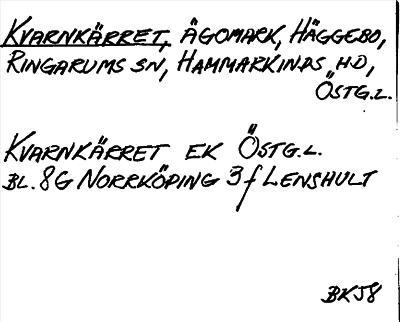 KVARNKÄRRET, ÄGOMARK, HÄGGEBO,
RINGARUMS SN, HAMMARKINDS HD,
ÖSTG.L.
KVARNKÄRRET EK ÖSTG.L.
BL. 8G NORRKÖPING 3f LENSHULT
BKJ8